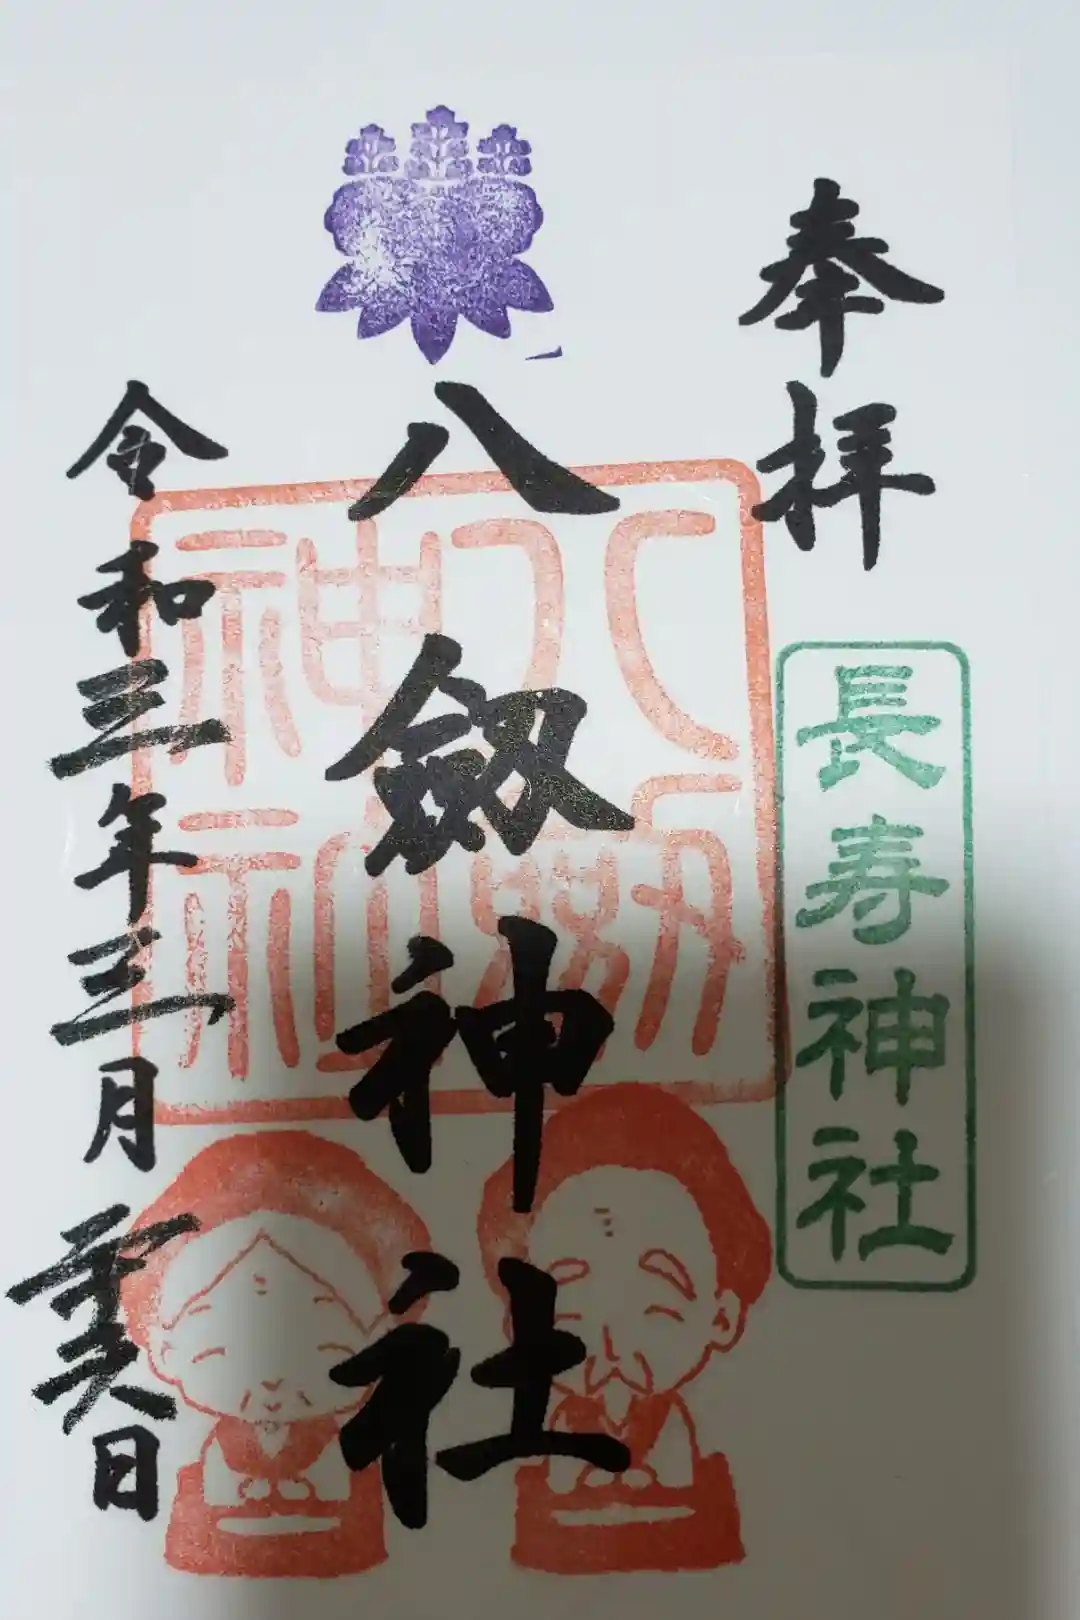 奉拝
長寿神社
八劔神社
八劔神社
令和三年三月 日